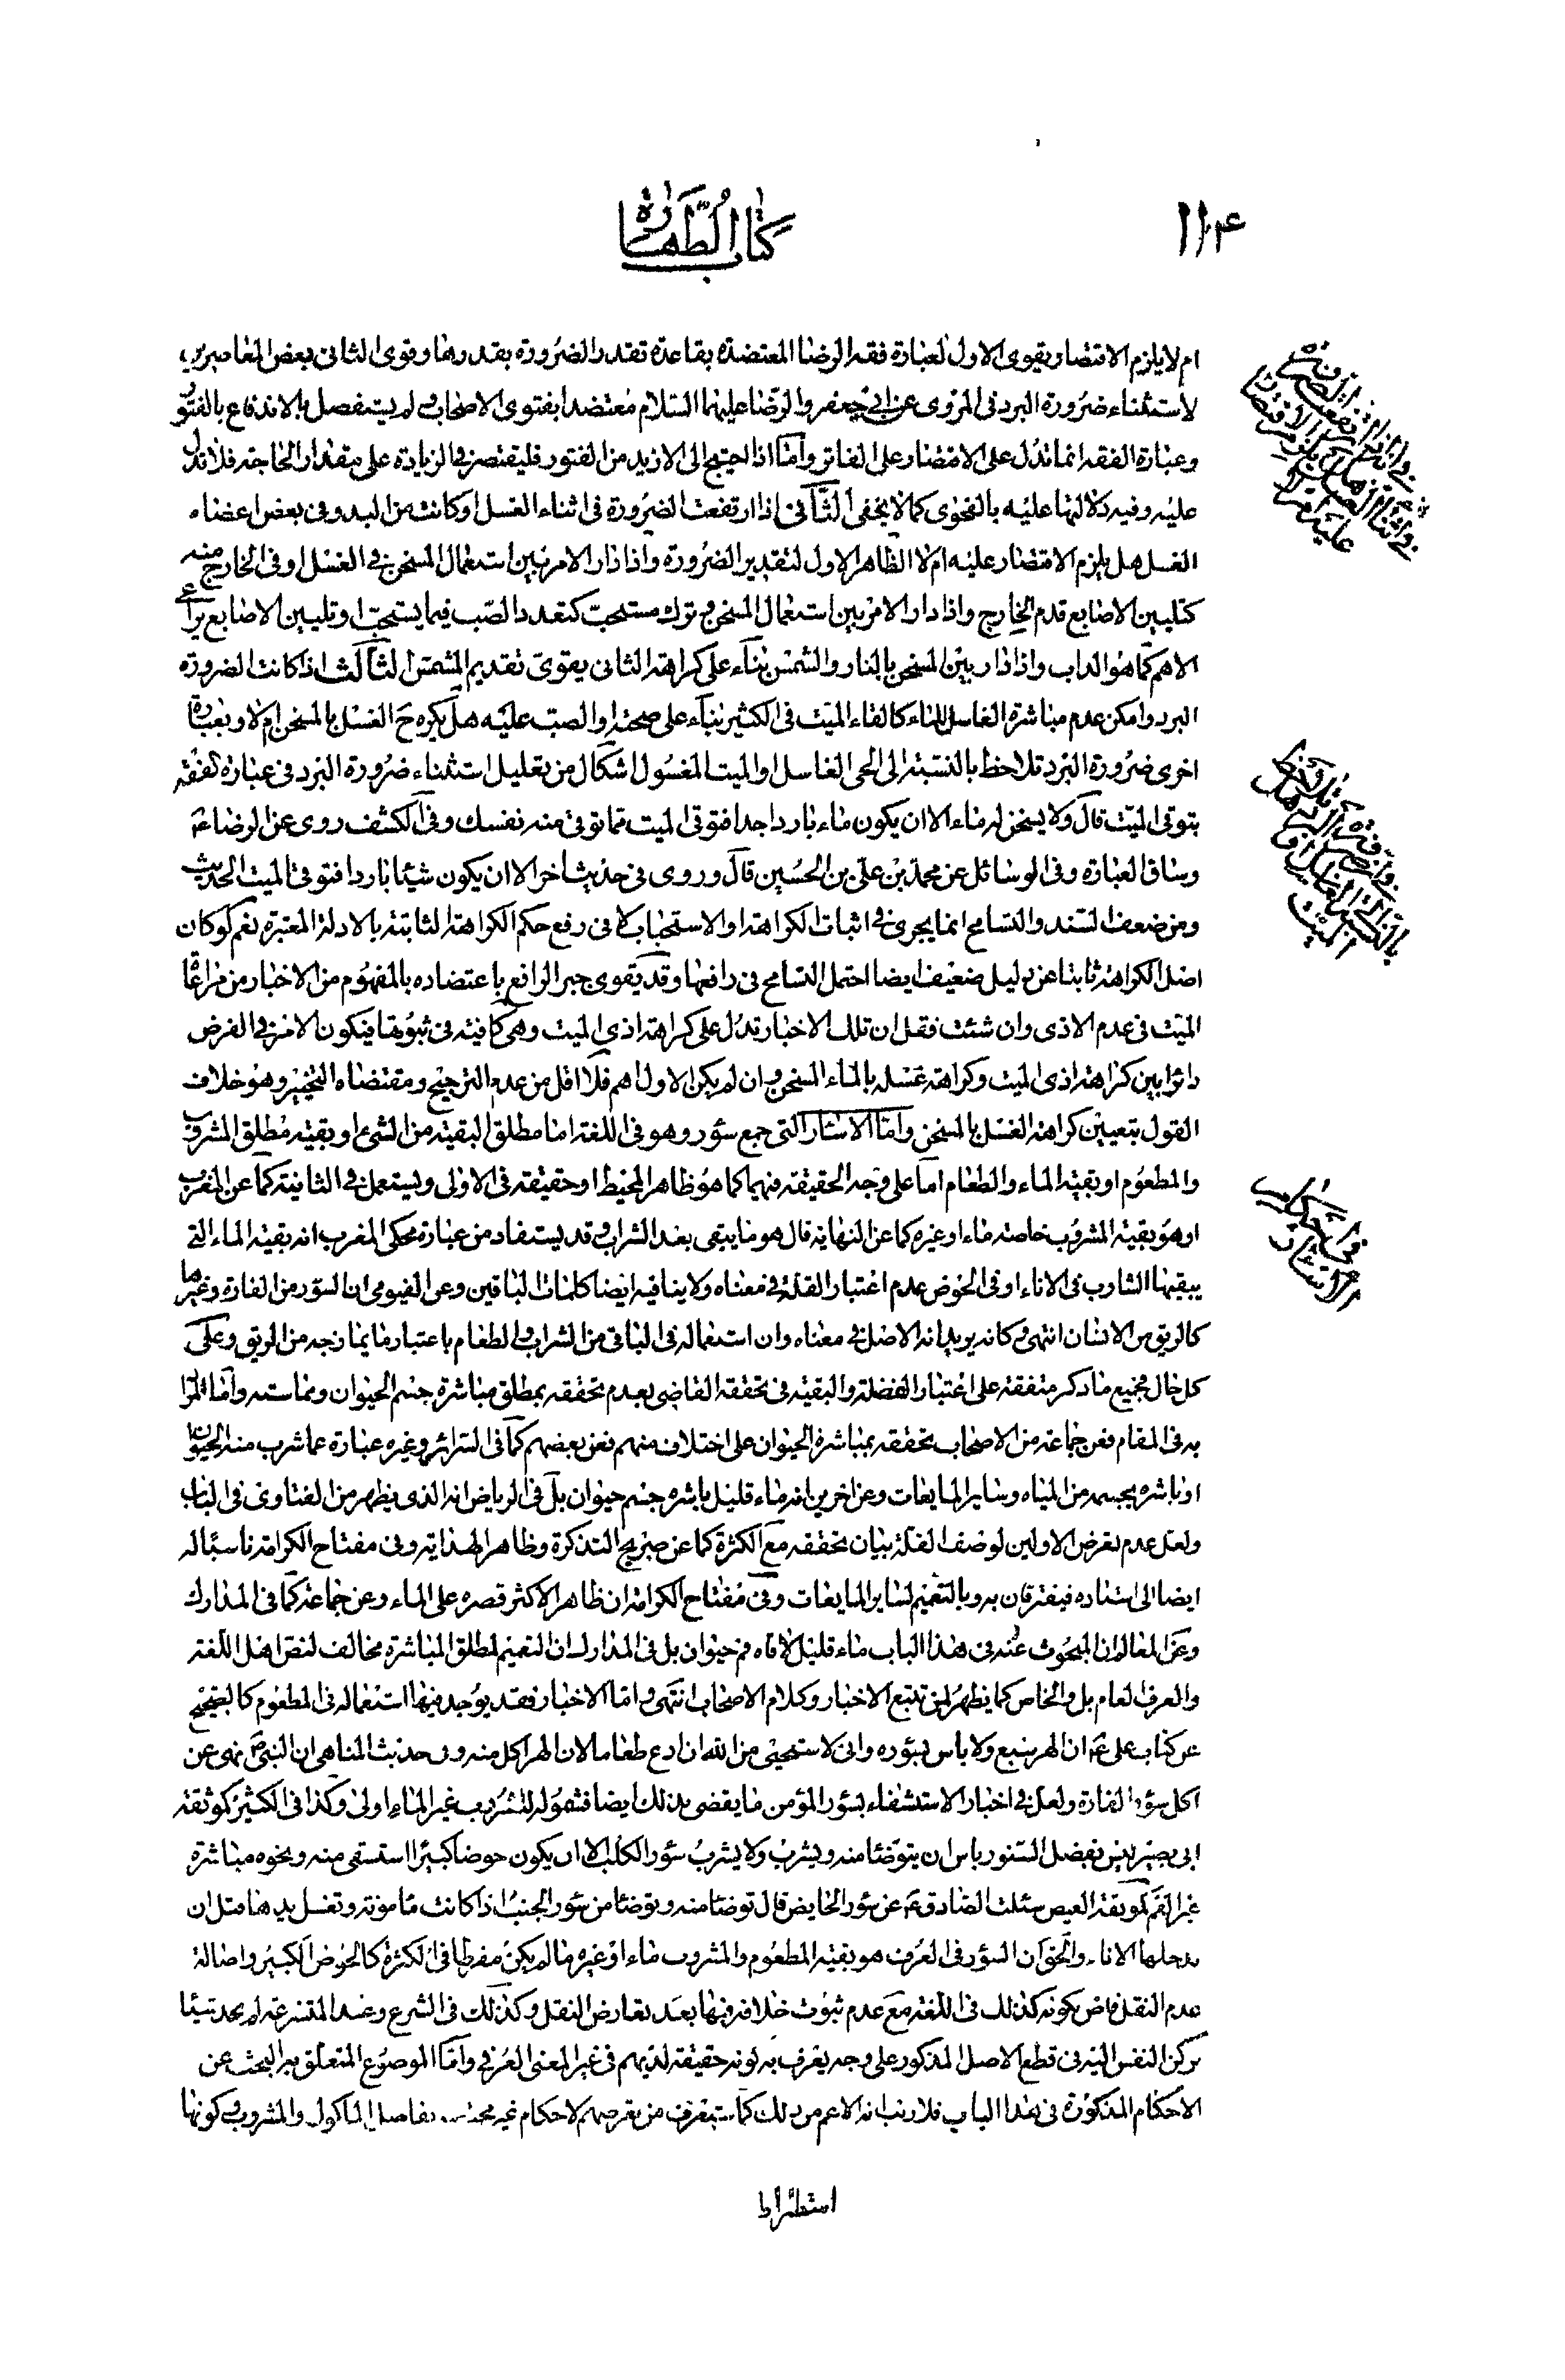 ١١٤
كتاب الطهارة
ام لا يلزم الاقتصار ويقوى الاول لعبارة فقه الرضا المعتضدة بقاعدة تقدر الضرورة بقدرها وقوى الثانى بعض المعاصرين
لاستثناء ضرورة البرد فى المروى عن ابى جعفر والرضا عليهما السلام معتضدا بفتوى الاصحاب و لم يستفصل بالاندفاع بالفتور
وعبارة الفقه انما تدل على الاقتصار على الفاتر وأما اذا احتيج الى الازيد من الفتور فليقتصر فى الزيادة على مقدار الحاجة فلا تدل
عليه وفيه دلالتها عليه بالفحوى كما لا يخفى الثانى اذا ارتفعت الضرورة فى اثناء الغسل او كانت من البدو فى بعض اعضاء
الغسل هل يلزم الاقتصار عليه ام لا الظاهر الاول لتقدير الضرورة واذا دار الامر بين استعمال المسخن فى الغسل او فى الخارج منه
كتليين الاصابع قدم الخارج واذا دار الامر بين استعمال المسخن و ترك مستحب كتعدد الصب فيما يستحب او تليين الاصابع يراعى
الاهم كما هو الداب واذا دار بين المسخن بالنار والشمس بناء على كراهة الثانى يقوى تقديم المشمس الثالث اذا كانت الضرورة
البرد وامكن عدم مباشرة الغاسل للماء كالقاء الميت فى الكثير بناء على صحته او الصب عليه هل يكره ح الغسل بالمسخن ام لا وبعبارة
اخرى ضرورة البرد تلاحظ بالنسبة الى الحى الغاسل او الميت المغسول اشكال من تعليل استثناء ضرورة البرد فى عبارة الفقه
بتوقى الميت قال ولا يسخن له ماء الا ان يكون ماء باردا جدا فتوقى الميت مما توقى منه نفسك وفى الكشف روى عن الرضا ع
وساق العبارة وفى الوسائل عن محمد بن على بن الحسين قال وروى فى حديث اخر الا ان يكون شيئا باردا فتوقى الميت الحديث
ومن ضعف السند والتسامح انما يجرى فى اثبات الكراهة او الاستحباب لا فى رفع حكم الكراهة الثابتة بالادلة المعتبرة نعم لو كان
اصل الكراهة ثابتا عن دليل ضعيف ايضا احتمل التسامح فى رافعها وقد يقوى جبر الرافع باعتضاده بالمفهوم من الاخبار من مراعاة
الميت فى عدم الاذى وان شئت فقل ان تلك الاخبار تدل على كراهة اذى الميت وهى كافية فى ثبوتها فيكون الامر فى الفرض
دائرا بين كراهة اذى الميت وكراهة غسله بالماء المسخن و ان لم يكن الاول اهم فلا اقل من عدم الترجيح ومقتضاه التخيير وهو خلاف
القول بتعيين كراهة الغسل بالمسخن وأما الاسئار التى جمع سؤر وهو فى اللغة اما مطلق البقية من الشىء او بقية مطلق المشروب
والمطعوم او بقية الماء والطعام اما على وجه الحقيقة فيهما كما هو ظاهر المحيط او حقيقة فى الاولى ويستعمل فى الثانية كما عن المغرب
او هو بقية المشروب خاصة ماء او غيره كما عن النهاية قال هو ما يبقى بعد الشراب و قد يستفاد من عبارة محكى المغرب انه بقية الماء التى
يبقيها الشارب فى الاناء او فى الحوض عدم اعتبار القلة فى معناه ولا ينافيه ايضا كلمات الباقين وعن الفيومى ان السؤر من الفارة وغيرها
كالريق من الانسان انتهى و كانه يريد انه الاصل فى معناه وان استعماله فى الباقى من الشراب والطعام باعتبار ما يمازجه من الريق وعلى
كل حال فجميع ما ذكر متفقة على اعتبار الفضلة والبقية فى تحققه القاضى بعدم تحققه بمطلق مباشرة جسم الحيوان ومماسته وأما المراد
به فى المقام فعن جماعة من الاصحاب تحققه بمباشرة الحيوان على اختلاف منهم فعن بعضهم كما فى السرائر وغيره عبارة عما شرب منه الحيوان
او باشره بجسمه من المياه وساير المايعات وعن اخرين انه ماء قليل باشره جسم حيوان بل فى الرياض انه الذى يظهر من الفتاوى فى الباب
ولعل عدم تعرض الاولين لوصف القلة بيان تحققه مع الكثرة كما عن صريح التذكرة وظاهر الهداية وفى مفتاح الكرامة ناسبا له
ايضا الى استاده فيفترقان به وبالتعميم لساير المايعات وفى مفتاح الكرامة ان ظاهر الاكثر قصره على الماء وعن جماعة كما فى المدارك
وعن المعالم ان المبحوث عنه فى هذا الباب ماء قليل لاقاه فم حيوان بل فى المدارك ان التعميم لمطلق المباشرة مخالف لنص اهل اللغة
والعرف العام بل والخاص كما يظهر لمن تتبع الاخبار وكلام الاصحاب انتهى و اما الاخبار فقد يوجد فيها استعماله فى المطعوم كالصحيح
عن كتاب على ع ان الهر سبع ولا باس بسؤره وانى لاستحيى من الله ان ادع طعاما لان الهر اكل منه وفى حديث المناهى ان النبى ص نهى عن
اكل سؤر الفارة ولعل فى اخبار الاستشفاء بسؤر المؤمن ما يقضى بذلك ايضا فشموله للشروب غير الماء اولى وكذا فى الكثير كموثقة
ابى بصير ليس بفضل السنور باس ان يتوضئا منه ويشرب ولا يشرب سؤر الكلب الا ان يكون حوضا كبيرا استسقى منه ونحوه مباشرة
غير الفم لموثقة العيص سئلت الصادق ع عن سؤر الحايض قال توضئا منه وتوضئا من سؤر الجنب اذا كانت مأمونة وتغسل يديها قبل ان
تدخلها الاناء والحق ان السؤر فى العرف هو بقية المطعوم والمشروب ماء او غيره ما لم يكن مفرطا فى الكثرة كالحوض الكبير واصالة
عدم النقل قاض بكونه كذلك فى اللغة مع عدم ثبوت خلافه فيها بعد تعارض النقل وكذلك فى الشرع وعند المتشرعة لم نجد شيئا
تركن النفس اليه فى قطع الاصل المذكور على وجه يعرف به كونه حقيقة لديهم فى غير المعنى العرفى وأما الموضوع المتعلق به البحث عن
الاحكام المذكورة فى هذا الباب فلا ريب انه الاعم من ذلك كما ستعرف من تعرضهم لاحكام غير تفاصيل المأكول والمشروب و كونها
استطرادا
فى انه اذا ارتفعت الضرورة
فى اثناء الغسل هل يلزم الاقتصار
عليه ام لا
فى ان ضرورة البرد هل تلاحظ
بالنسبة الى الغاسل او
الميت
فى احكام
الاسئار